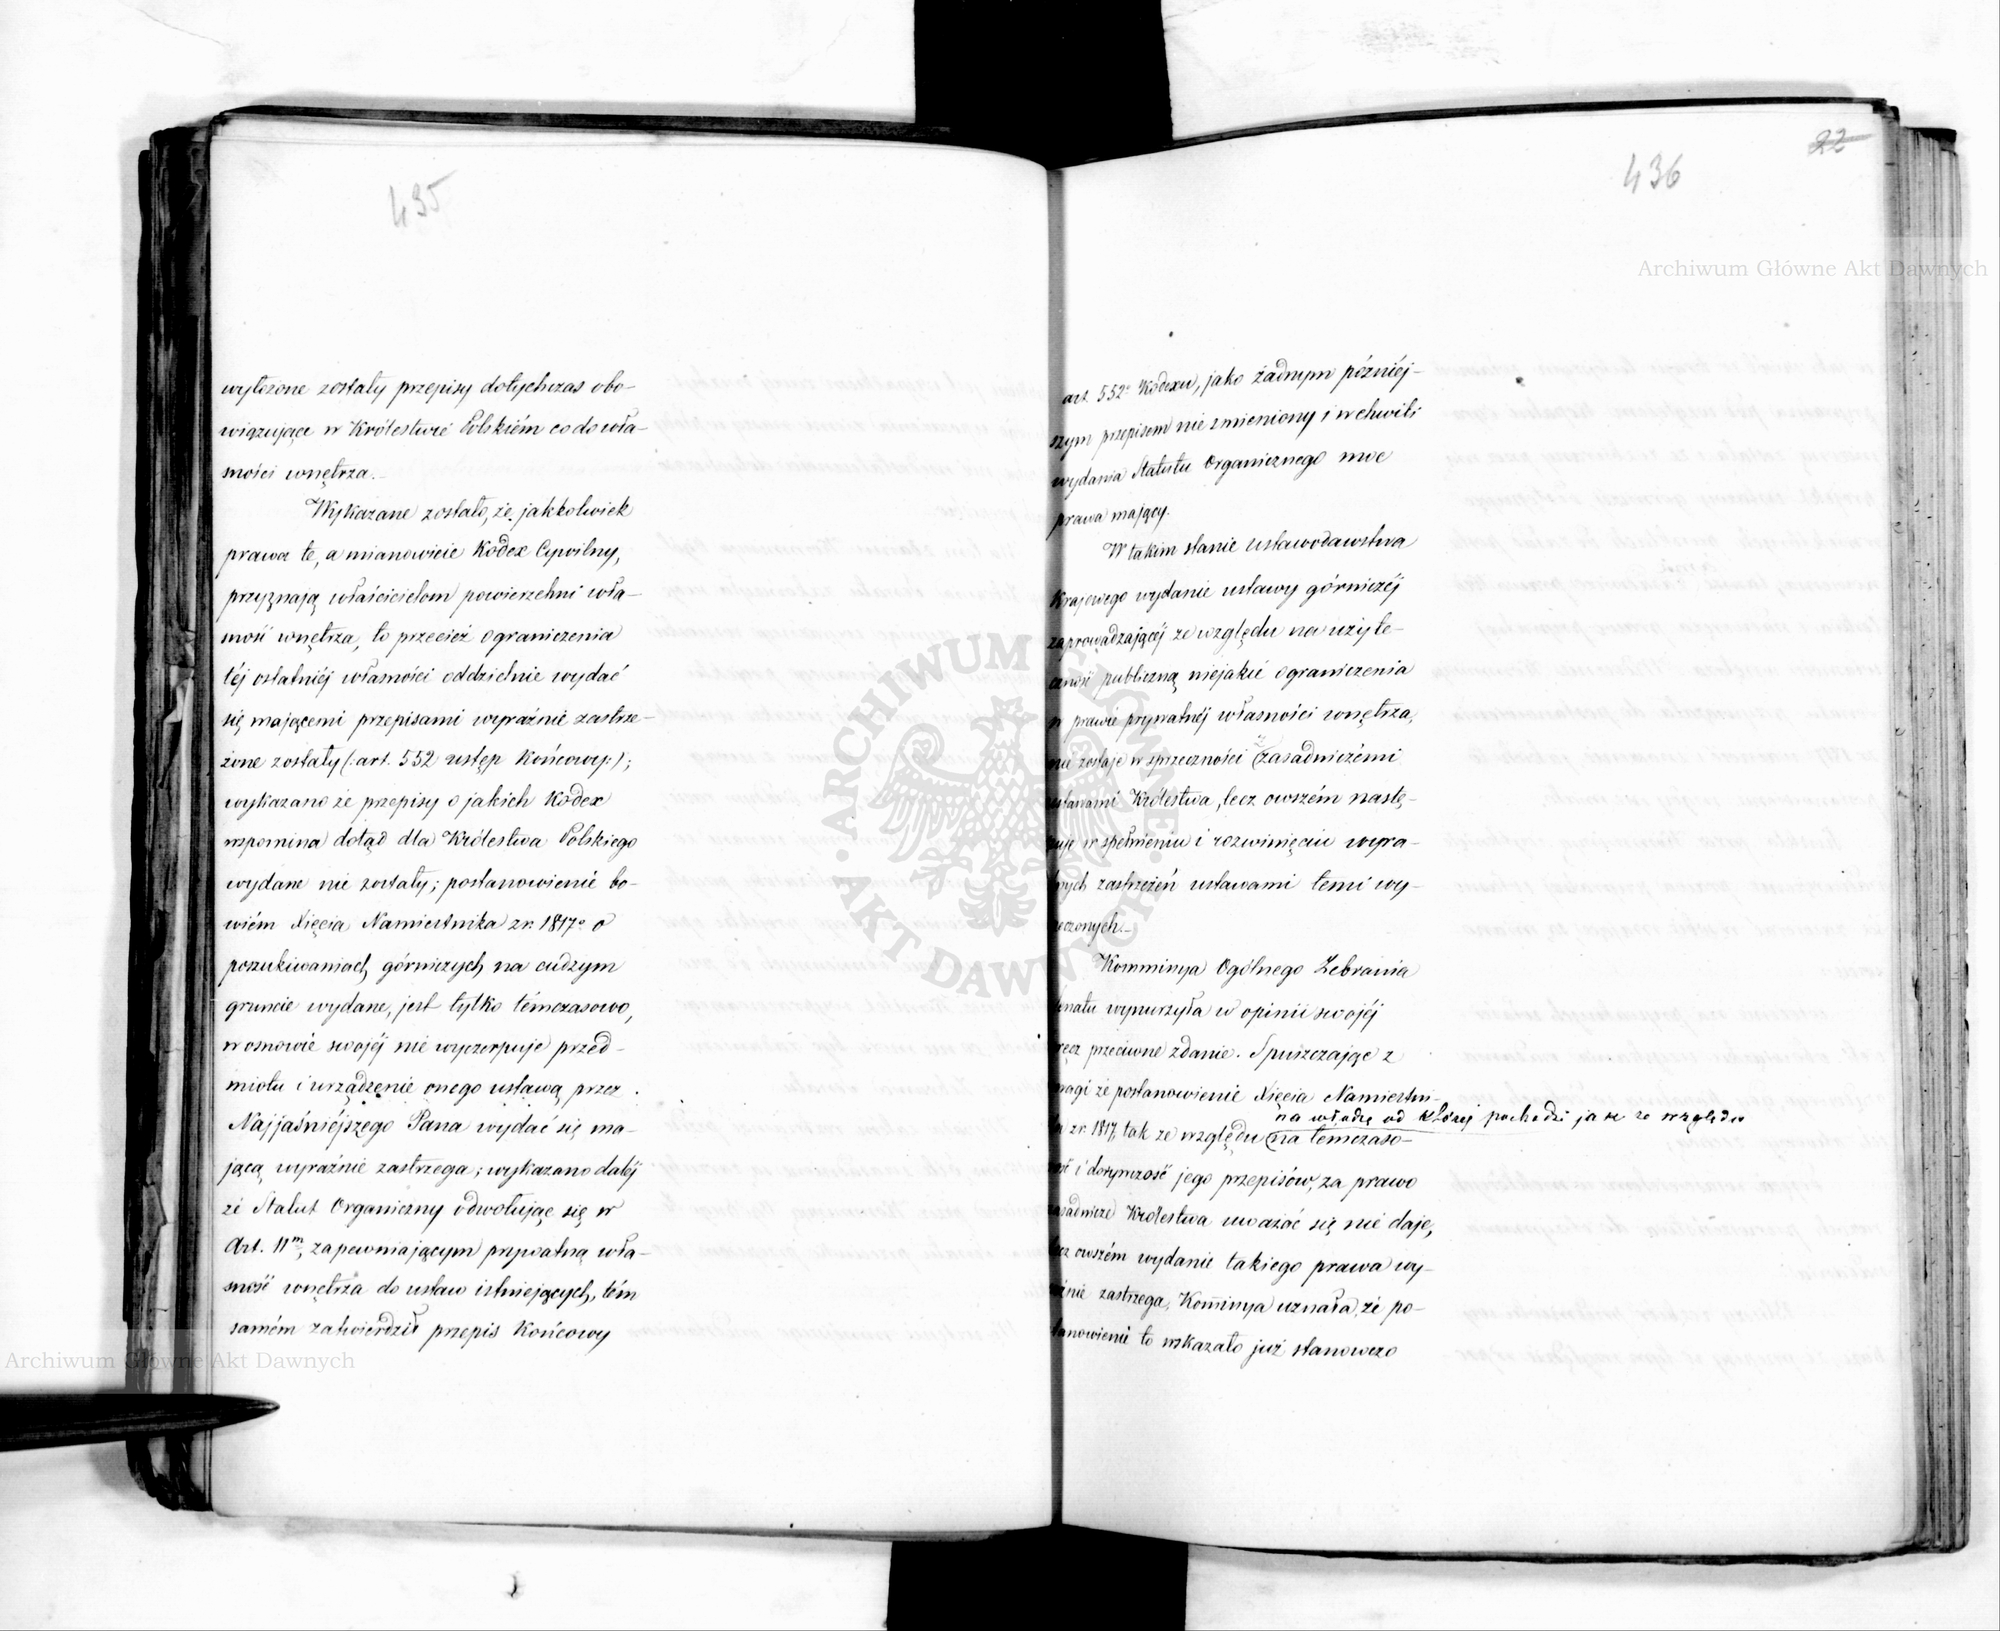 435
wyłożone zostały przepisy dotychczas obo-
wiązujące w Królestwie Polskiém co do wła-
sności wnętrza.-
Wykazane zostało, że jakkolwiek
prawa te, a mianowicie Kodex Cywilny,
przyznają właścicielom powierzchni wła-
sność wnętrza, to przecież ograniczenia
téj ostatniéj własności oddzielnie wydać
się mającemi przepisami wyraźnie zastrze-
żone zostały (:art. 552 ustęp końcowy:);
wykazano że przepisy o jakich Kodex
wspomina dotąd dla Królestwa Polskiego
wydane nie zostały; postanowienie bo-
wiém Xięcia Namiestnika z r. 1817º o
poszukiwaniach górniczych na cudzym
gruncie wydane, jest tylko témczasowo,
w osnowie swojéj nie wyczerpuje przed-
miotu i urządzenie onego ustawą przez
Najjaśniéjszego Pana wydać się ma-
jącą wyraźnie zastrzega; wykazano daléj
że Statut Organiczny odwołując się w
Art. 11m, zapewniającym prywatną wła-
sność wnętrza do ustaw istniejących, tém
samém zatwierdził przepis końcowy
22
436
art. 552º Kodexu, jako żadnym późniéj-
szym przepisem nie zmieniony i w chwili
wydania Statutu Organicznego moc
prawa mający.
W takim stanie ustawodawstwa
Krajowego wydanie ustawy górniczéj
zaprowadzającéj ze względu na użyte-
czność publiczną niejakie ograniczenia
w prawie prywatnéj własności wnętrza,
nie zostaje w sprzeczności z zasadniczémi
ustawami Królestwa, lecz owszém nastę-
puje w spełnieniu i rozwinięciu wyra-
źnych zastrzeżeń ustawami temi wy-
rzeczonych.-
Kommissya Ogólnego Zebrania
Senatu wynurzyła w opinii swojéj
wręcz przeciwne zdanie. Spuszczając z
uwagi że postanowienie Xięcia Namiestni-
na władzę od któréj pochodzi jak ze względu
ka z r. 1817, tak ze względu na témczaso-
wość i dorywczość jego przepisów, za prawo
zasadnicze Królestwa uważać się nie daje,
lecz owszém wydanie takiego prawa wy-
raźnie zastrzega, Kommissya uznała, że po-
stanowienie to wskazało już stanowczo
Archiwum Główne Akt Dawnych
Archiwum Główne Akt Dawnych
ARCHIWUM GŁÓWNE AKT DAWNYCH